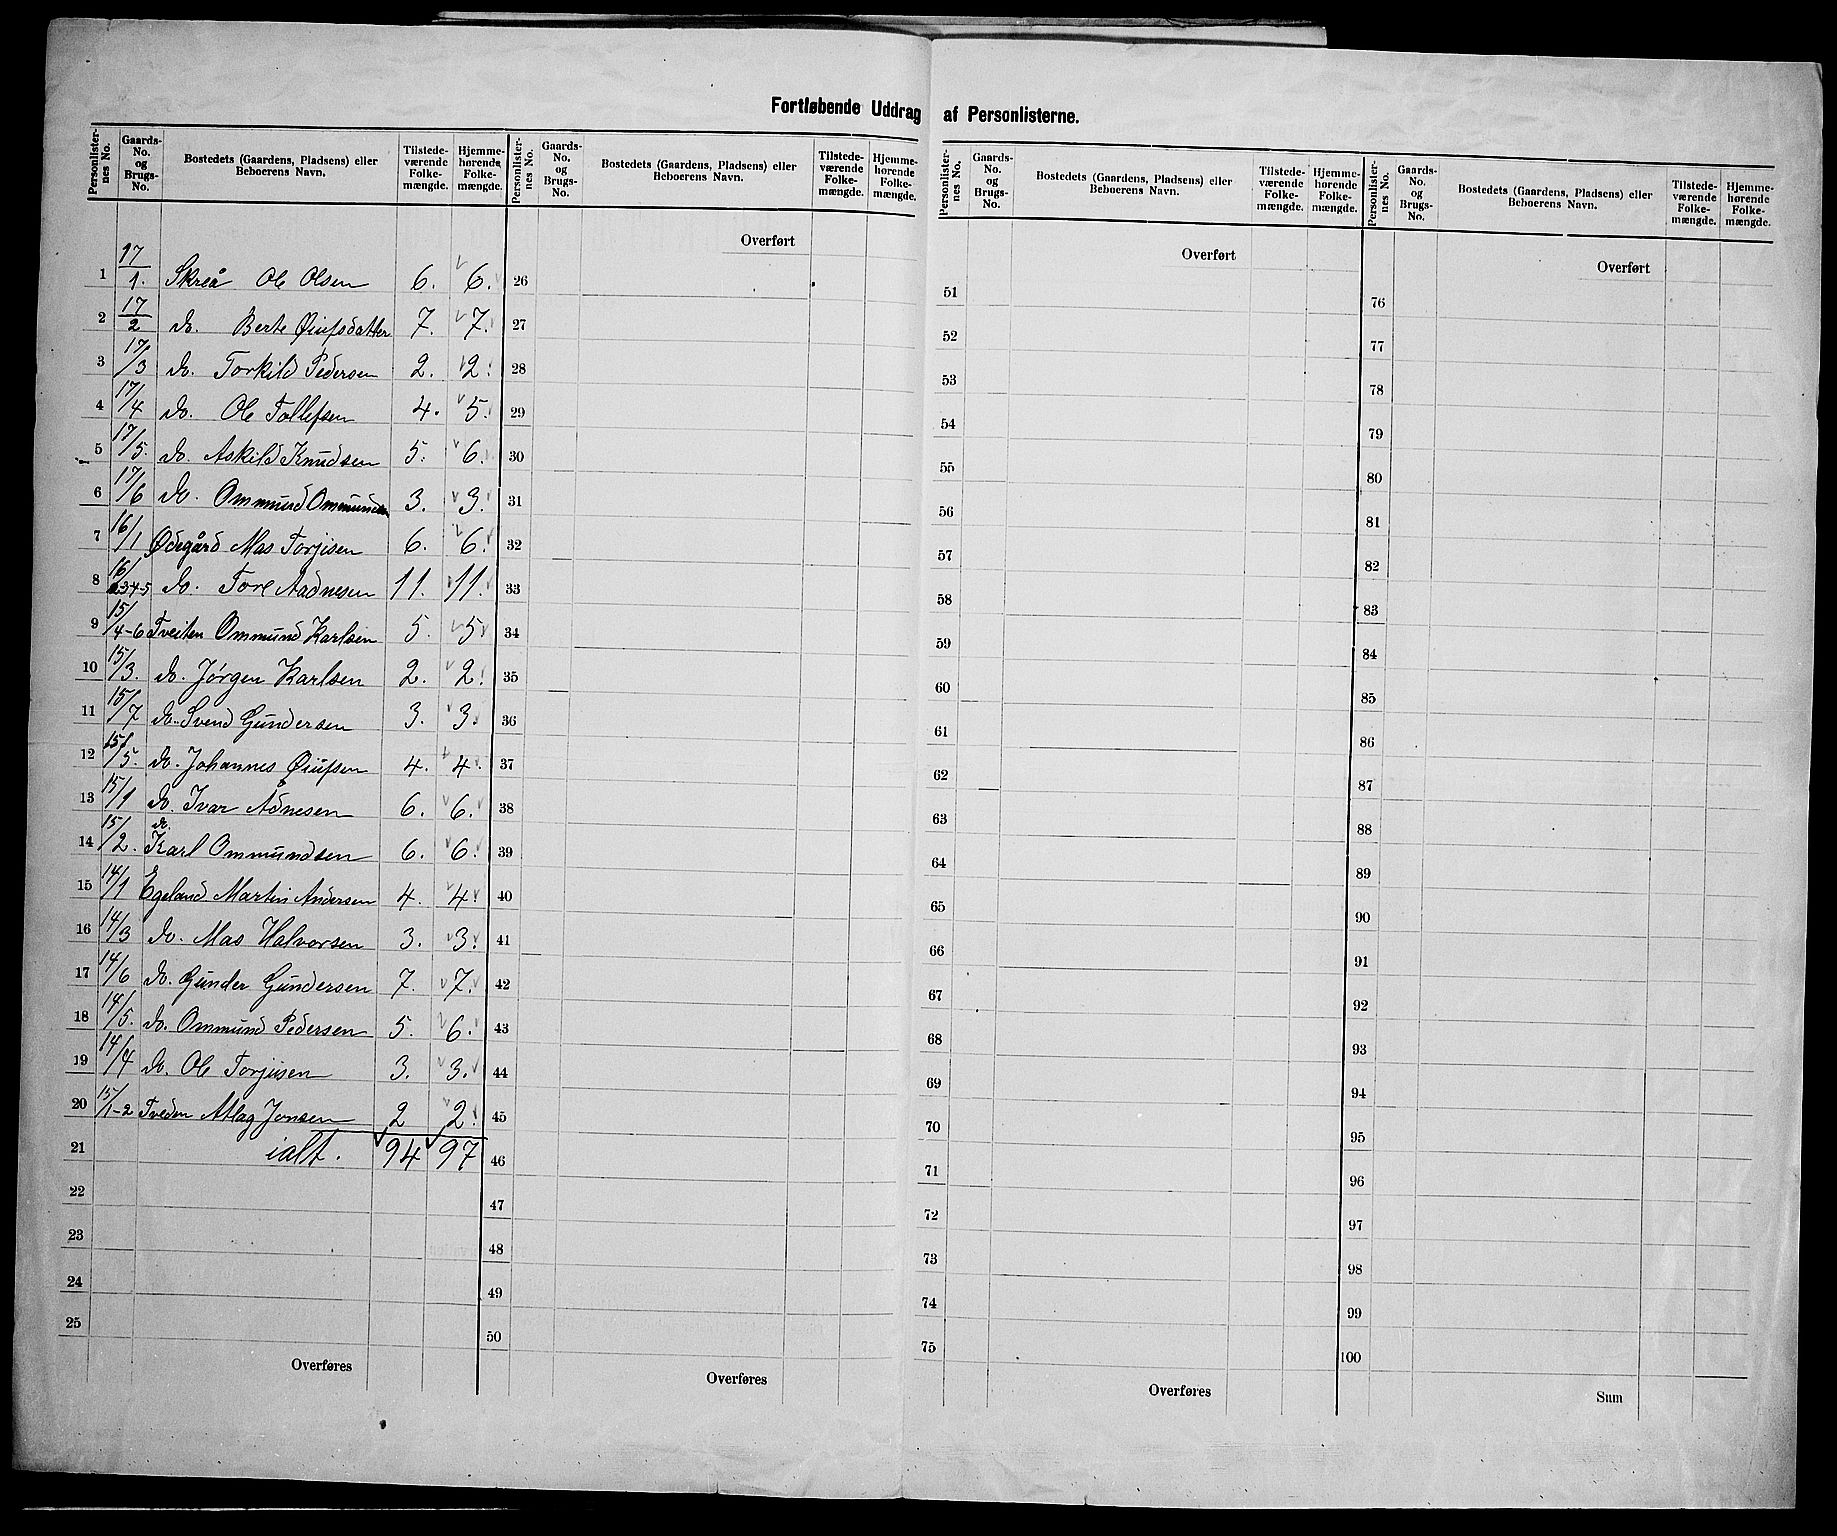 Fortløbende Uddrag af Personlisterne.
Personlister-nes No. | Gaards-No. og Brugs-No. | Bostedets (Gaardens, Pladsens) eller Beboerens Navn. | Tilstede-værende Folke-mængde. | Hjemme-hørende Folke-mængde.
Overført
1 17/1. Skreå Ole Olsen 6. 6.
2 17/2 do. Berte Øiufsdatter 7. 7.
3 17/3 do. Torkild Pedersen 2. 2.
4 17/4 do. Ole Tollefsen 4. 5.
5 17/5. do. Askild Knudsen 5. 6.
6 17/6 do. Ommund Ommundsen 3. 3.
7 16/1 Ødegård Mas Torjisen 6. 6.
8 16/2-3-4-5 do. Tore Aadnesen 11. 11.
9 15/4-6 Tveiten Ommund Karlsen 5. 5.
10 15/3. do. Jørgen Karlsen 2. 2.
11 15/7 do. Svend Gundersen 3. 3.
12 15/5. do. Johannes Øiufsen 4. 4.
13 15/1 do. Ivar Ådnesen 6. 6.
14 15/2. do. Karl Ommundsen 6. 6.
15 14/1 Egeland Martin Andersen 4. 4.
16 14/3 do. Mas Halvorsen 3. 3.
17 14/6 do. Gunder Gundersen 7. 7.
18 14/5. do. Ommund Pedersen 5. 6.
19 14/4 do. Ole Torjisen 3. 3.
20 15/1-2 Tveden Atlag Jonsen 2 2.
21 ialt. 94 97
22
23
24
25
Overføres
Personlister-nes No. | Gaards-No. og Brugs-No. | Bostedets (Gaardens, Pladsens) eller Beboerens Navn. | Tilstede-værende Folke-mængde. | Hjemme-hørende Folke-mængde.
Overført
26
27
28
29
30
31
32
33
34
35
36
37
38
39
40
41
42
43
44
45
46
47
48
49
50
Overføres
Personlister-nes No. | Gaards-No. og Brugs-No. | Bostedets (Gaardens, Pladsens) eller Beboerens Navn. | Tilstede-værende Folke-mængde. | Hjemme-hørende Folke-mængde.
Overført
51
52
53
54
55
56
57
58
59
60
61
62
63
64
65
66
67
68
69
70
71
72
73
74
75
Overføres
Personlister-nes No. | Gaards-No. og Brugs-No. | Bostedets (Gaardens, Pladsens) eller Beboerens Navn. | Tilstede-værende Folke-mængde. | Hjemme-hørende Folke-mængde.
Overført
76
77
78
79
80
81
82
83
84
85
86
87
88
89
90
91
92
93
94
95
96
97
98
99
100
Sum